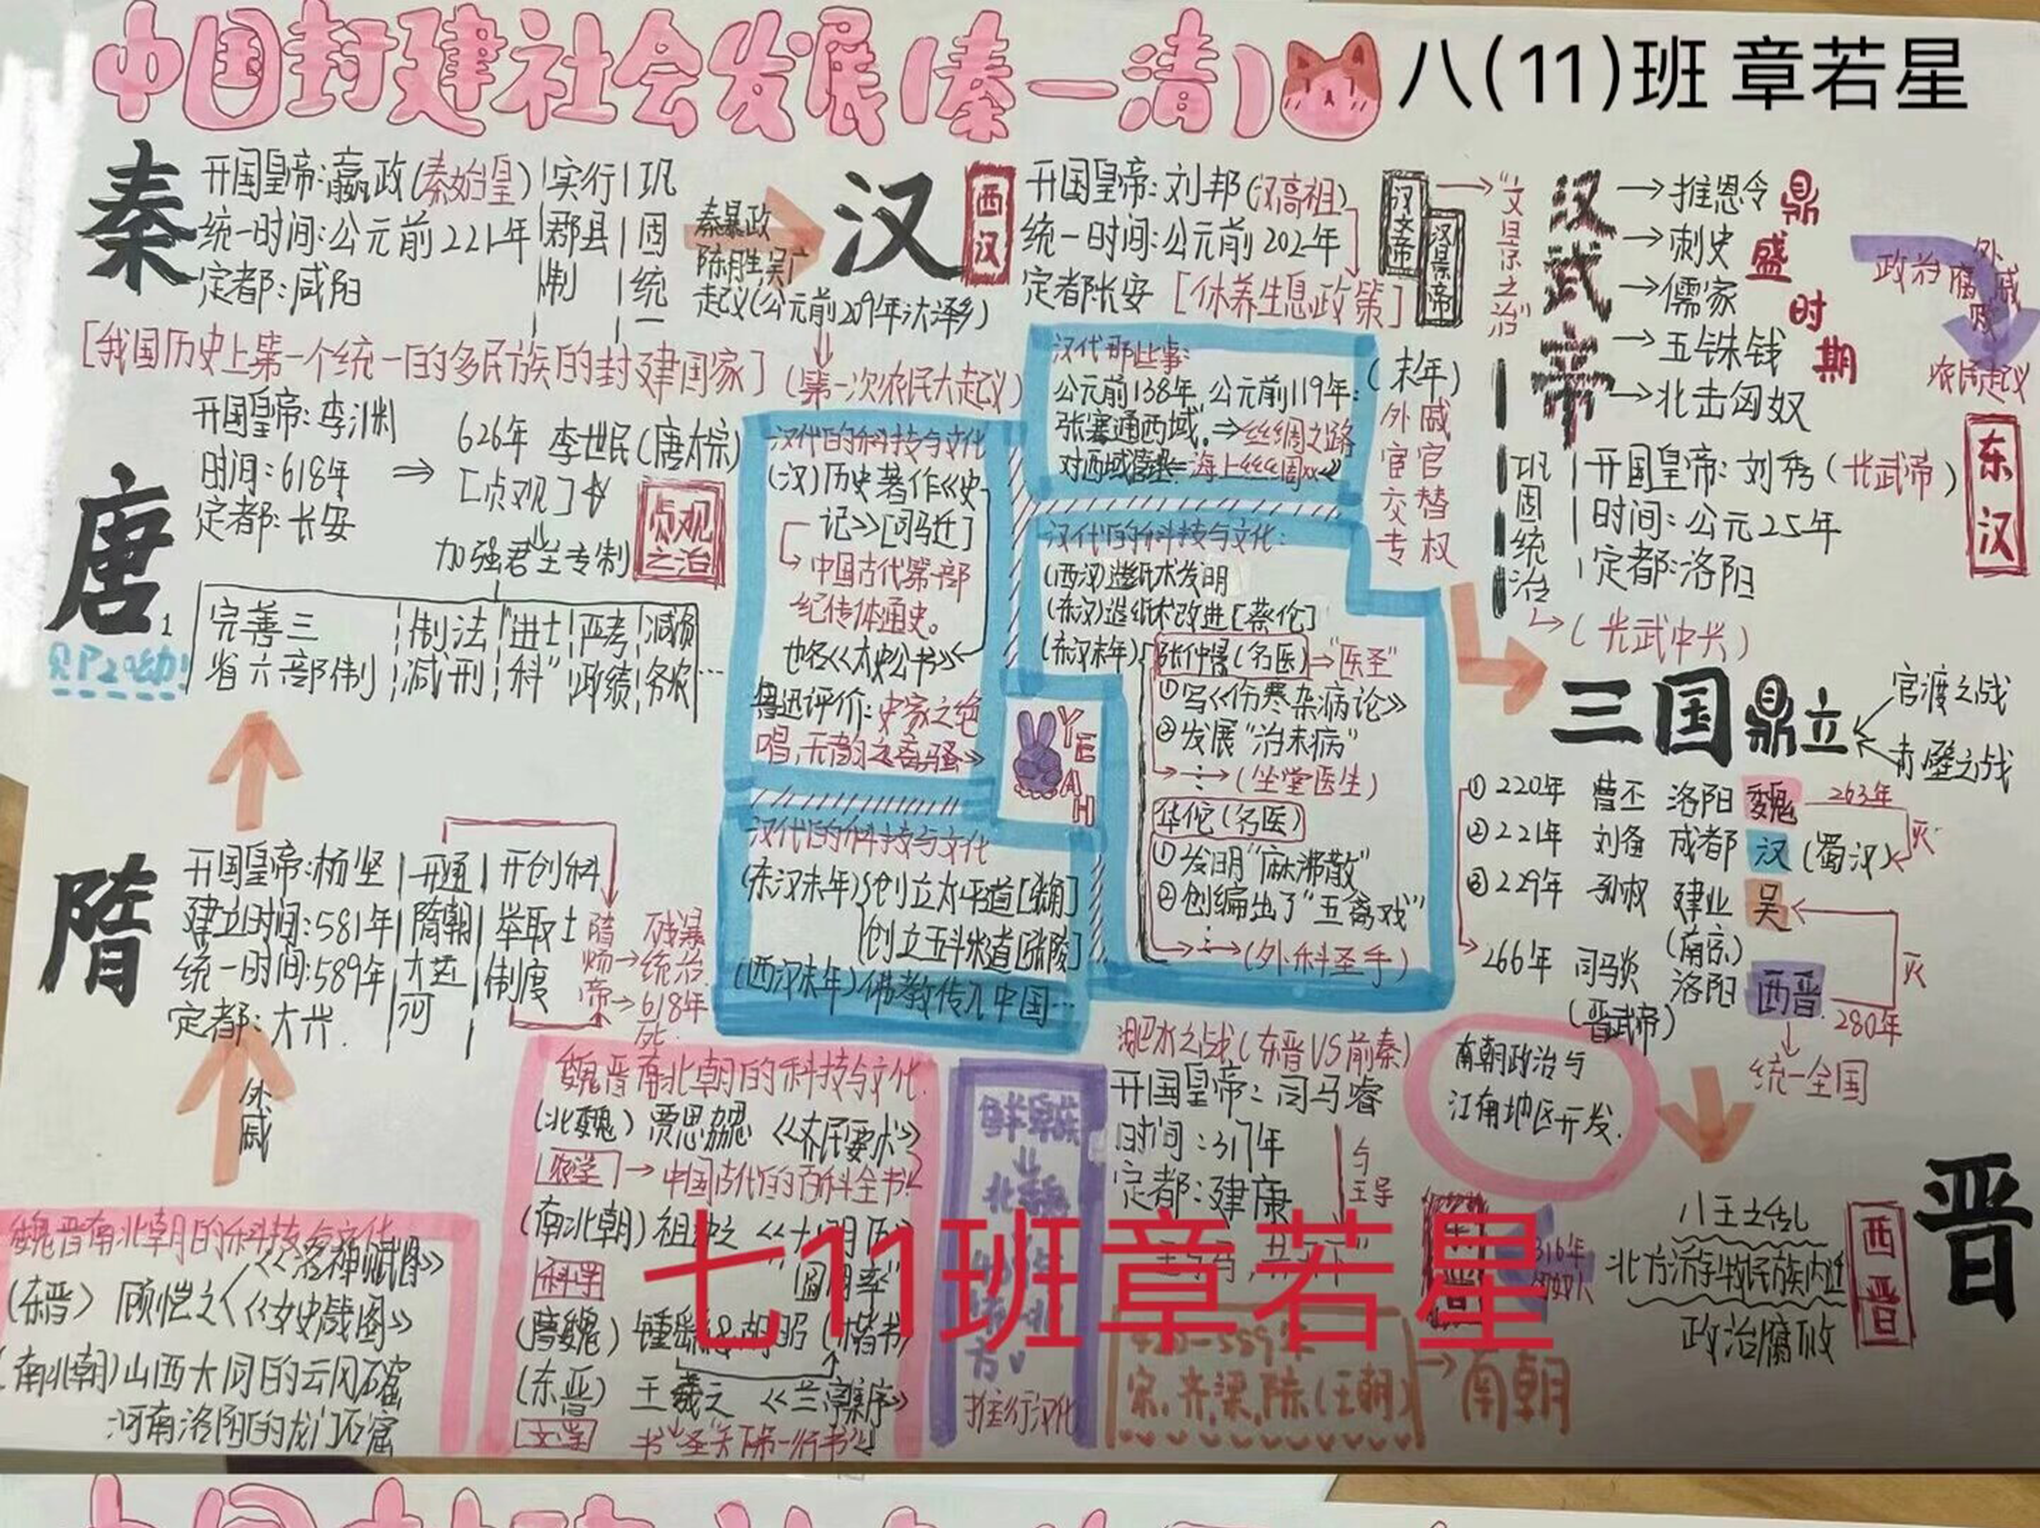 中国封建社会发展(秦一清)
八(11)班 章若星
秦
开国皇帝:嬴政(秦始皇)
统一时间:公元前221年
定都:咸阳
实行
郡县
制
巩
固
统
一
[我国历史上第一个统一的多民族的封建国家]
秦暴政
陈胜、吴广
起义(公元前209年大泽乡)
(第一次农民大起义)
汉
西汉
开国皇帝:刘邦(汉高祖)
统一时间:公元前202年
定都:长安 [休养生息政策]
汉文帝
汉景帝
"文景之治"
汉武帝
→推恩令
→刺史
→儒家
→五铢钱
→北击匈奴
鼎盛时期
政治腐败
外戚
农民起义
(末年)
外戚
宦官
交替
专权
东汉
开国皇帝:刘秀(光武帝)
时间:公元25年
定都:洛阳
巩固统治
→(光武中兴)
汉代那些事:
公元前138年,公元前119年:
张骞通西域。⇒丝绸之路
汉代的科技与文化
(汉)历史著作《史
记》[司马迁]
中国古代第一部
纪传体通史。
也名《太史公书》
鲁迅评价:史家之绝
唱,无韵之离骚》
汉代的科技与文化:
(西汉)造纸术发明
(东汉)造纸术改进[蔡伦]
(东汉末年)张仲景(名医)⇒"医圣"
①写《伤寒杂病论》
②发展"治未病"
→(坐堂医生)
华佗(名医)
①发明"麻沸散"
②创编出了"五禽戏"
→(外科圣手)
YEAH
汉代的科技与文化
(东汉末年)创立太平道[张角]
创立五斗米道[张陵]
(西汉末年)佛教传入中国…
三国鼎立
官渡之战
赤壁之战
①220年 曹丕 洛阳 魏
②221年 刘备 成都 汉(蜀汉)
③229年 孙权 建业 吴
(南京)
266年 司马炎 洛阳 西晋
(晋武帝)
263年
灭
灭
280年
统一全国
唐
开国皇帝:李渊
时间:618年
定都:长安
⇒
626年 李世民(唐太宗)
[贞观]
加强君主专制
贞观之治
完善三
省六部制
制法
减刑
"进士
科"
严考
政绩
减负
务农…
隋
开国皇帝:杨坚
建立时间:581年
统一时间:589年
定都:大兴.
开通
隋朝
大运
河
开创科
举取士
制度
隋炀帝
残暴
统治
618年
死
外戚
魏晋南北朝的科技与文化
(北魏)贾思勰《齐民要术》
农学→中国古代的百科全书
(南北朝)祖冲之《大明历》
科学 "圆周率"
(曹魏)钟繇&胡昭(楷书)
(东晋)王羲之《兰亭序》
文学 书"圣" "天下第一行书"
魏晋南北朝的科技与文化
《洛神赋图》
(东晋)顾恺之《女史箴图》
(南北朝)山西大同的云冈石窟
河南洛阳的龙门石窟
鲜卑族
推行汉化
淝水之战(东晋VS前秦)
开国皇帝:司马睿
时间:317年
定都:建康
与王导
南朝政治与
江南地区开发.
晋
西晋
八王之乱
北方游牧民族内迁
政治腐败
316年
匈奴人
420—589年
宋、齐、梁、陈(王朝)
→南朝
七11班章若星